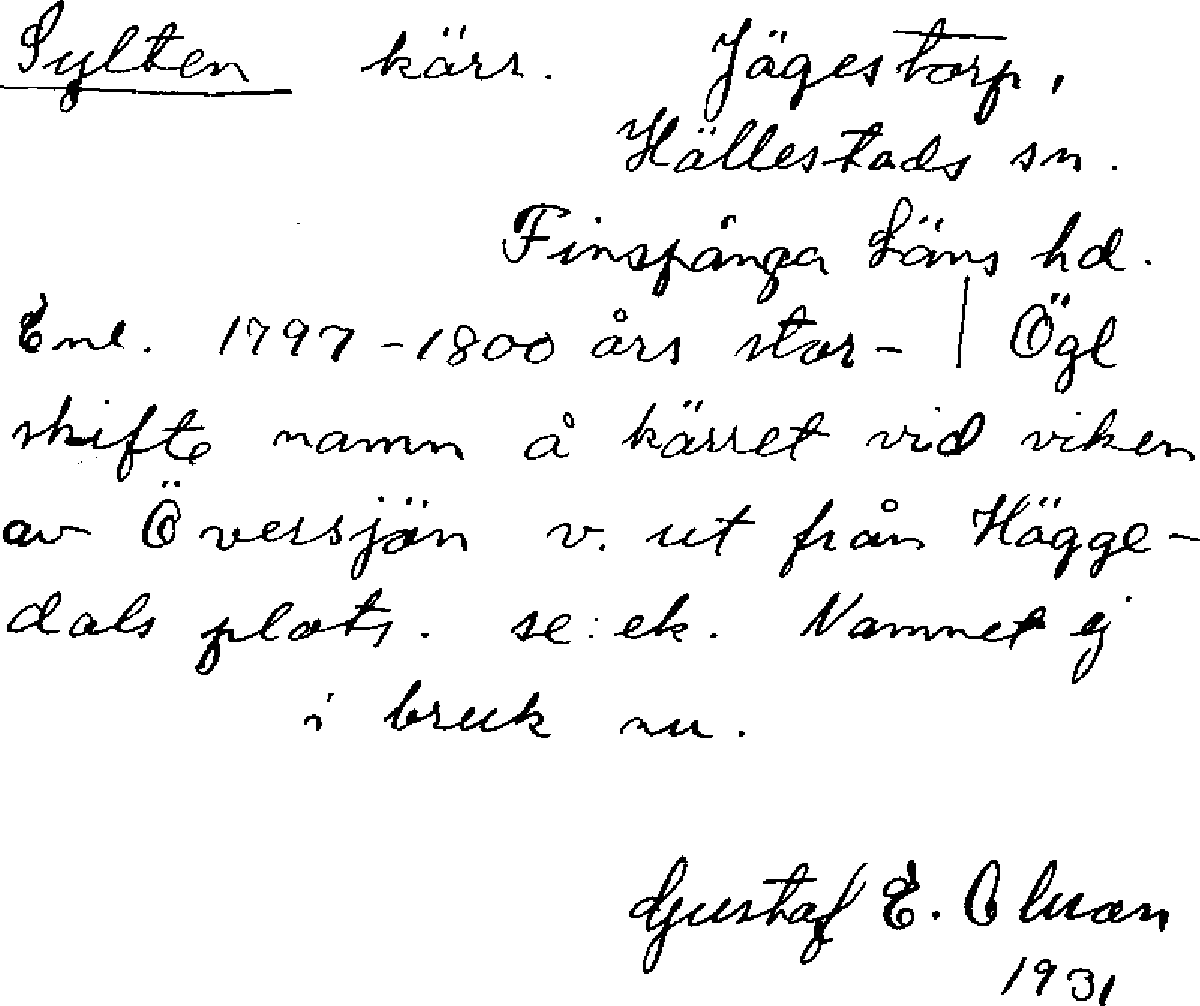 Sylten kärr. Jägestorp,
Hällestads sn.
Finspånga Läns hd.
Enl. 1797-1800 års stor- | Ögl
skifte namn å kärret vid viken
av Översjön v. ut från Hägge-
dals plats. se: ek. Namnet ej
i bruk nu.
Gustaf E.
1931